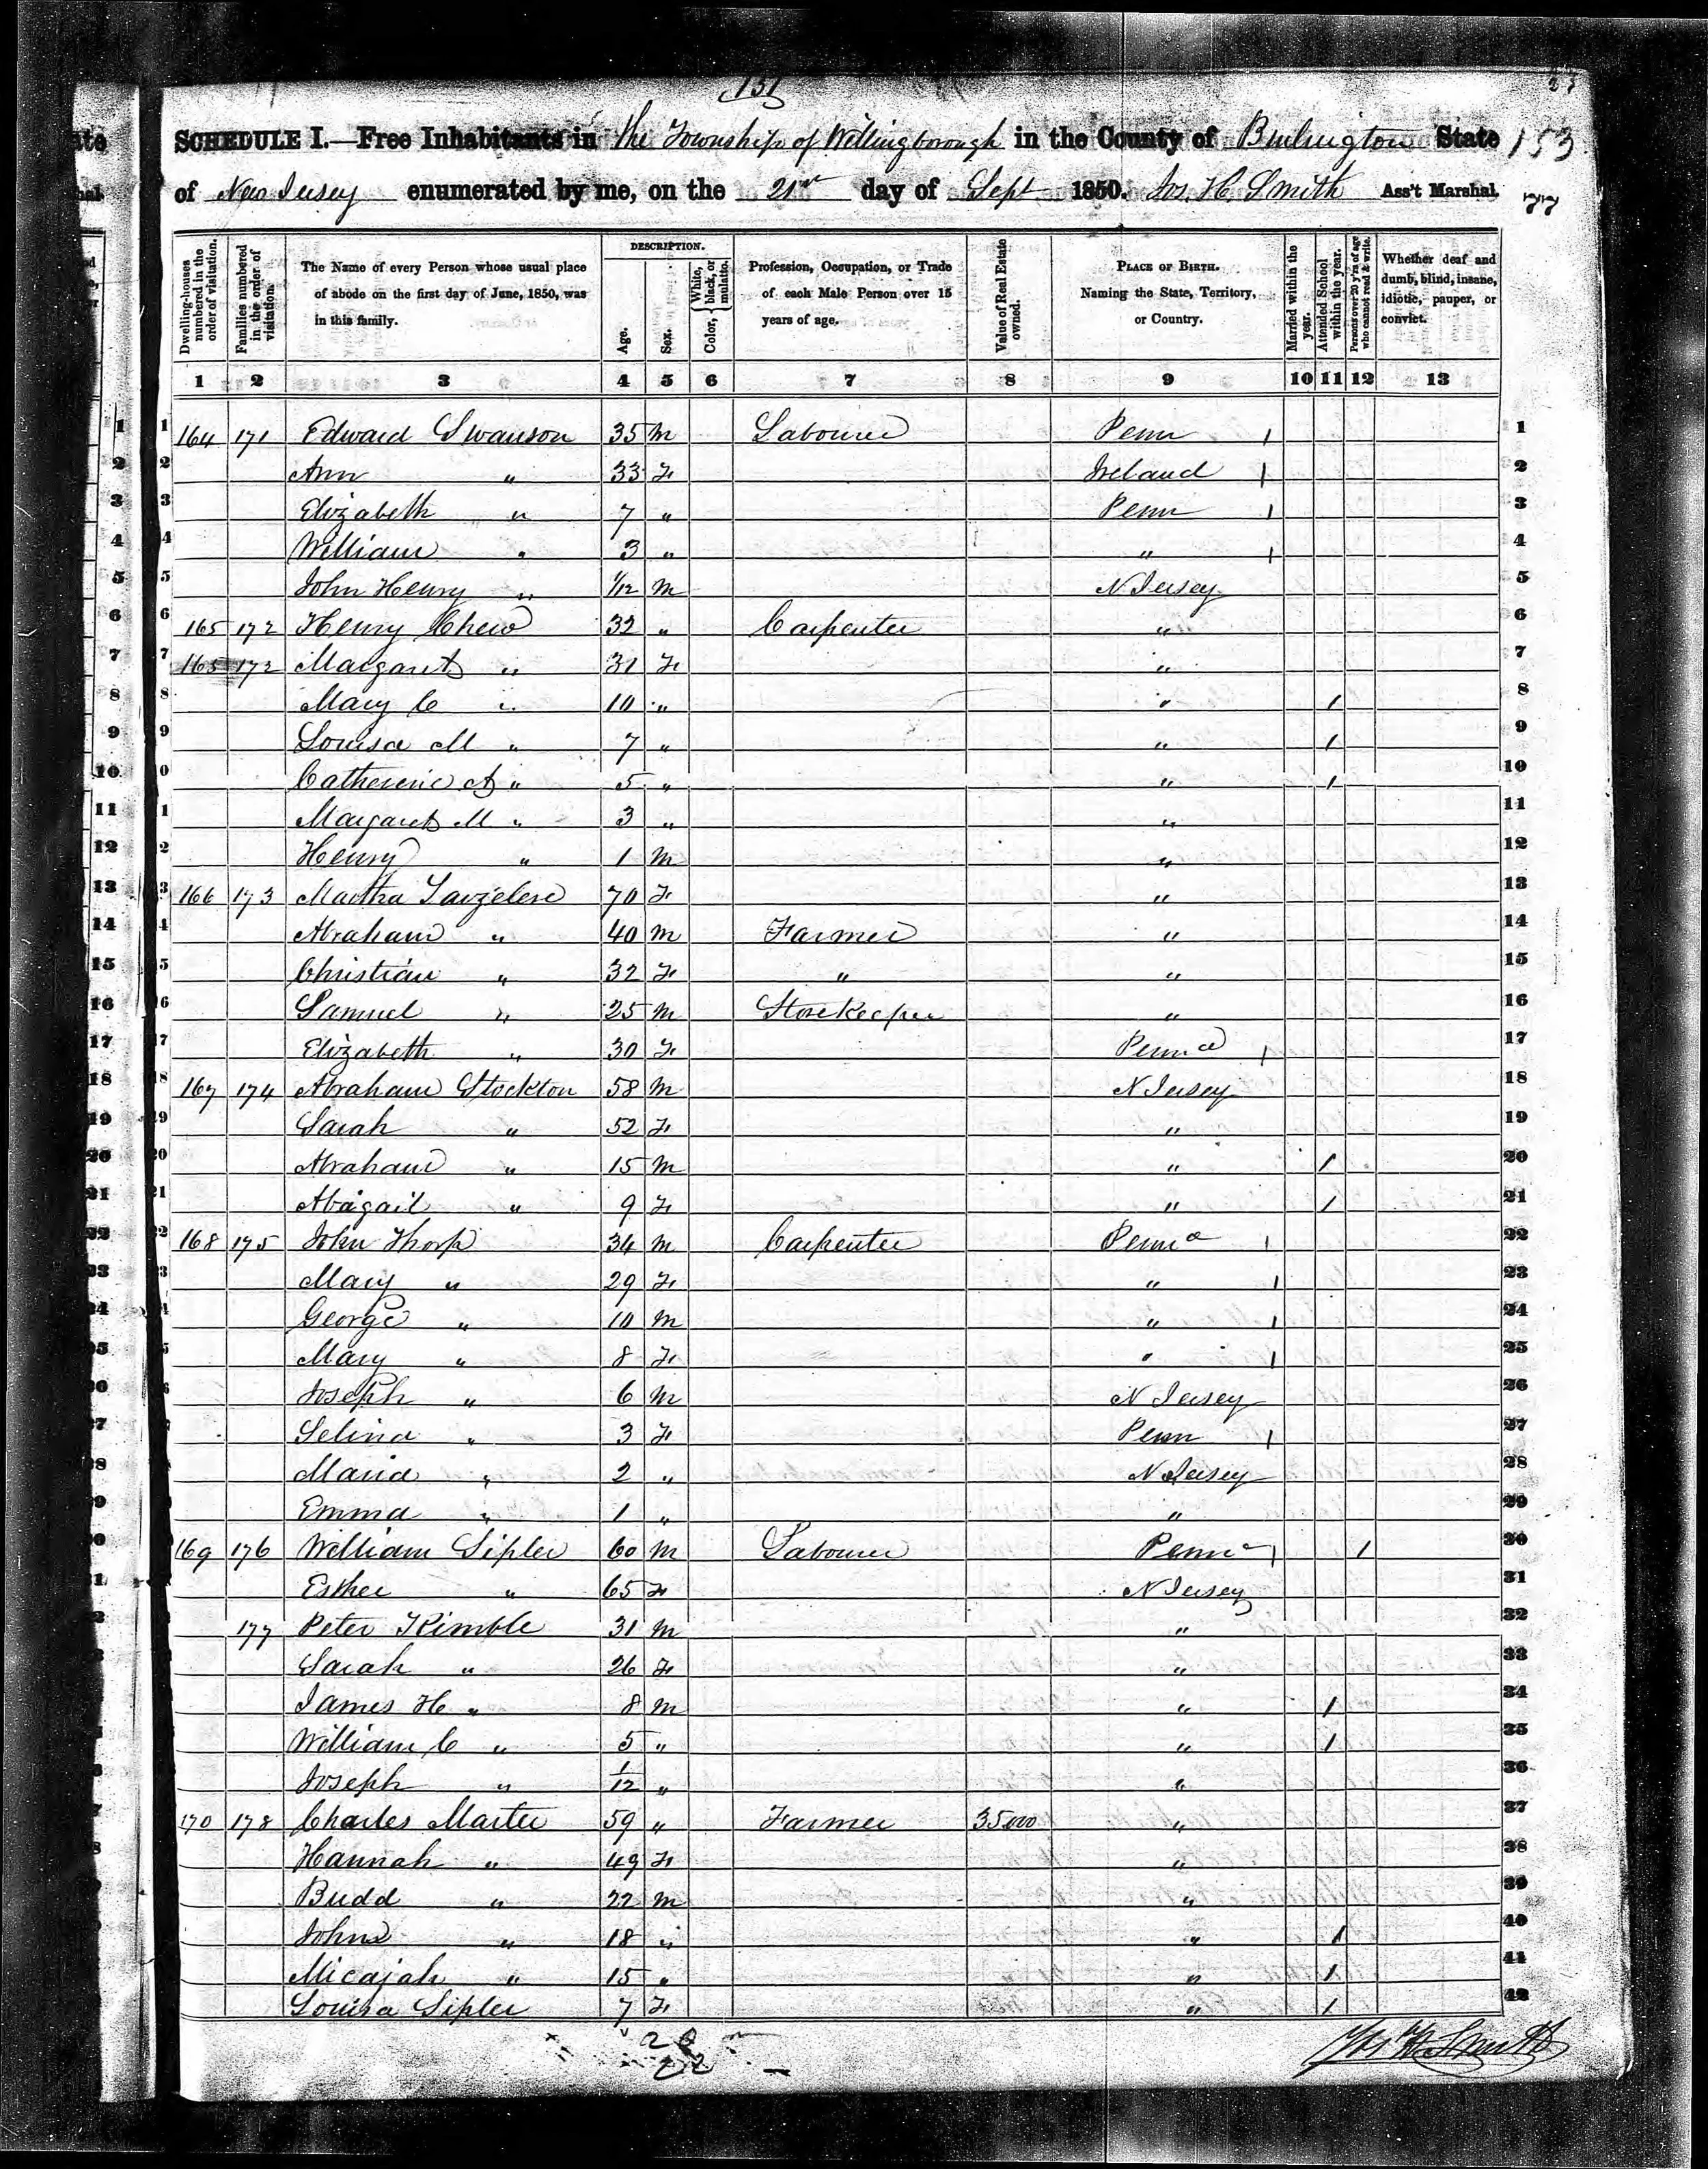 131
23
SCHEDULE I.—Free Inhabitants in the Township of Willingborough in the County of Burlington State 153
of New Jersey enumerated by me, on the 21st day of Sept 1850. Jos. H. Smith Ass't Marshal.
77
Dwelling-houses numbered in the order of visitation.
Families numbered in the order of visitation.
The Name of every Person whose usual place of abode on the first day of June, 1850, was in this family.
DESCRIPTION.
Age.
Sex.
Color, { White, black, or mulatto.
Profession, Occupation, or Trade of each Male Person over 15 years of age.
Value of Real Estate owned.
PLACE OF BIRTH. Naming the State, Territory, or Country.
Married within the year.
Attended School within the year.
Persons over 20 y'rs of age who cannot read & write.
Whether deaf and dumb, blind, insane, idiotic, pauper, or convict.
1 2 3 4 5 6 7 8 9 10 11 12 13
1 164 171 Edward Swanson 35 M Labourer Penn 1 1
2 Ann " 33 F Ireland 1 2
3 Elizabeth " 7 " Penn 1 3
4 William " 3 " " 1 4
5 John Henry " 1/12 M N Jersey 5
6 165 172 Henry Chew 32 " Carpenter " 6
7 165 172 Margaret " 31 F " 7
8 Mary C " 10 " " 1 8
9 Louisa M " 7 " " 1 9
10 Catherine A " 5 " " 1 10
11 Margaret M " 3 " " 11
12 Henry " 1 M " 12
13 166 173 Martha 70 F " 13
14 Abraham " 40 M Farmer " 14
15 Christian " 32 F " " 15
16 Samuel " 25 M Storekeeper " 16
17 Elizabeth " 30 F Penna 1 17
18 167 174 Abraham Stockton 58 M N Jersey 18
19 Sarah " 52 F " 19
20 Abraham " 15 M " 1 20
21 Abagail " 9 F " 1 21
22 168 175 John Thorp 34 M Carpenter Penna 1 22
23 Mary " 29 F " 1 23
24 George " 10 M " 1 24
25 Mary " 8 F " 1 25
26 Joseph " 6 M N Jersey 26
27 Selina " 3 F Penn 1 27
28 Maria " 2 " N Jersey 28
29 Emma " 1 " " 29
30 169 176 William Sipler 60 M Labourer Penna 1 1 30
31 Esther " 65 F N Jersey 31
177 Peter Kimble 31 M " 32
Sarah " 26 F " 33
James H " 8 M " 1 34
William C " 5 " " 1 35
Joseph " 1/12 " " 36
170 178 Charles Marter 59 " Farmer 35000 " 37
Hannah " 49 F " 38
Budd " 22 M " 39
John " 18 " " 1 40
Micajah " 15 " " 1 41
Louisa Sipler 7 F " 1 42
20
22
Jos H Smith